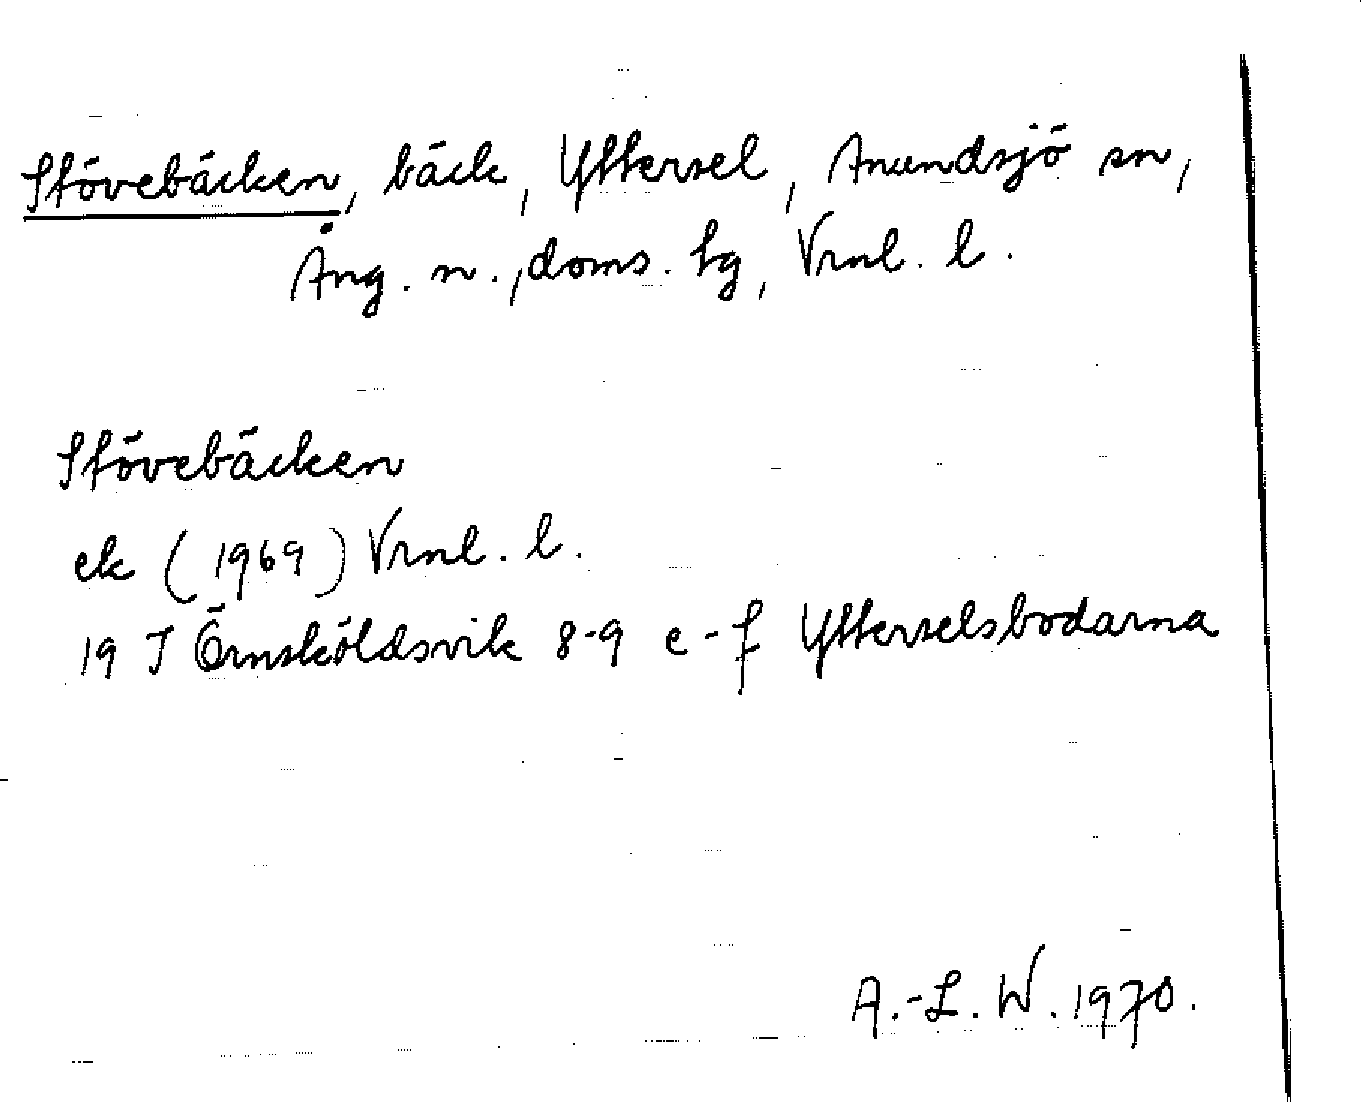 Stövebäcken, bäck, Yttersel, Anundsjö sn,
Ång. n., doms. hg, Vrnl. l.
Stövebäcken
ek (1969) Vrnl. l.
19 J Örnsköldsvik 8-9 e-f Ytterselsbodarna
A.-L. W. 1970.